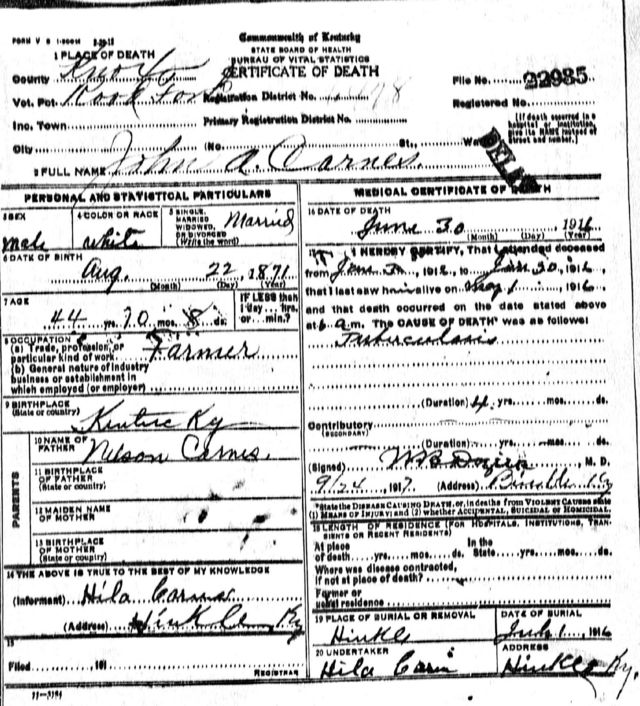 FORM V S 1-500M 2-20-15
Commonwealth of Kentucky
STATE BOARD OF HEALTH
BUREAU OF VITAL STATISTICS
CERTIFICATE OF DEATH
1 PLACE OF DEATH
County Knox
Vot. Pct
Registration District No.
File No. 22985
Inc. Town
Primary Registration District No.
Registered No.
City (No. St., Ward)
[If death occurred in a hospital or institution, give its NAME instead of street and number.]
2 FULL NAME John A. Carnes.
PERSONAL AND STATISTICAL PARTICULARS
3 SEX male
4 COLOR OR RACE white
5 SINGLE, MARRIED WIDOWED, OR DIVORCED (Write the word) Married
6 DATE OF BIRTH
Aug. 22, 1871
(Month) (Day) (Year)
7 AGE
44 yrs. 10 mos. 8 ds.
IF LESS than 1 day... hrs. or... min.?
8 OCCUPATION
(a) Trade, profession, or particular kind of work Farmer
(b) General nature of industry
business or establishment in
which employed (or employer)
9 BIRTHPLACE
(State or country)
Ky
PARENTS
10 NAME OF FATHER Nelson Carnes.
11 BIRTHPLACE OF FATHER (State or country)
12 MAIDEN NAME OF MOTHER
13 BIRTHPLACE OF MOTHER (State or country)
14 THE ABOVE IS TRUE TO THE BEST OF MY KNOWLEDGE
(Informant) Hila Carnes
(Address) Hinkle Ky
15
Filed 191
REGISTRAR
11-3191
MEDICAL CERTIFICATE OF DEATH
16 DATE OF DEATH
June 30, 1916
(Month) (Day) (Year)
17 I HEREBY CERTIFY, That I attended deceased
from 191 to June 30, 1916
that I last saw him alive on May 1 1916
and that death occurred on the date stated above
at 6 a.m. The CAUSE OF DEATH was as follows:
Tuberculosis
(Duration) 4 yrs. mos. ds.
Contributory
(SECONDARY)
(Duration) yrs. mos. ds.
(Signed) W B Dozier, M. D.
9/24, 1917. (Address) Ky
*State the DISEASE CAUSING DEATH, or, in deaths from VIOLENT CAUSES state
(1) MEANS OF INJURY; and (2) whether ACCIDENTAL, SUICIDAL or HOMICIDAL.
18 LENGTH OF RESIDENCE (FOR HOSPITALS, INSTITUTIONS, TRANSIENTS OR RECENT RESIDENTS)
At place of death yrs. mos. ds. In the State yrs. mos. ds.
Where was disease contracted,
if not at place of death?
Former or
usual residence
19 PLACE OF BURIAL OR REMOVAL
Hinkle
DATE OF BURIAL
July 1, 1916
20 UNDERTAKER
Hila
ADDRESS
Hinkle Ky.